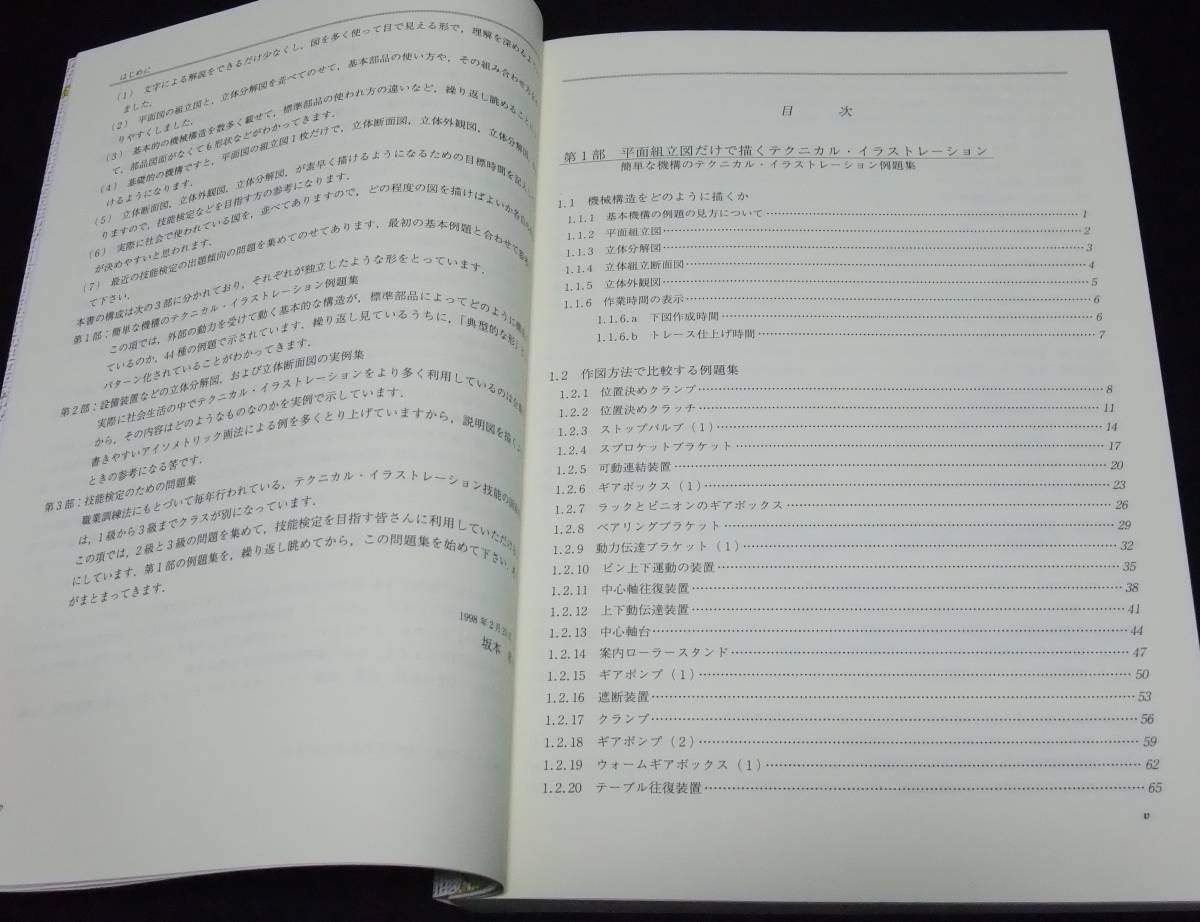 はじめに
（1） 文字による解説をできるだけ少なくし，図を多く使って目で見える形で，理解を深めるよう
ました．
（2） 平面図の組立図と，立体分解図を並べてのせて，基本部品の使い方や，その組み合わせ方な
りやすくしました．
（3） 基本的の機械構造を数多く載せて，標準部品の使われ方の違いなど，繰り返し眺めること
て，部品図面がなくても形状などがわかってきます．
（4） 基礎的の機構ですと，平面図の組立図1枚だけで，立体断面図，立体外観図，立体分解図，
けるようになります．
（5） 立体断面図，立体外観図，立体分解図，が素早く描けるようになるための目標時間を記入し
りますので，技能検定などを目指す方の参考になります．
（6） 実際に社会で使われている図を，並べてありますので，どの程度の図を描けばよいか各自
が決めやすいと思われます．
（7） 最近の技能検定の出題傾向の問題を集めてのせてあります．最初の基本例題と合わせて
て下さい．
本書の構成は次の3部に分かれており，それぞれが独立したような形をとっています．
第1部：簡単な機構のテクニカル・イラストレーション例題集
この項では，外部の動力を受けて動く基本的な構造が，標準部品によってどのように
ているのか，44種の例題で示されています．繰り返し見ているうちに，「典型的な形」
パターン化されていることがわかってきます．
第2部：設備装置などの立体分解図，および立体断面図の実例集
実際に社会生活の中でテクニカル・イラストレーションをより多く利用しているのは
から，その内容はどのようなものなのかを実例で示しています．
書きやすいアイソメトリック画法による例を多くとり上げていますから，説明図を描く
ときの参考になる筈です．
第3部：技能検定のための問題集
職業訓練法にもとづいて毎年行われている，テクニカル・イラストレーション技能の
は，1級から3級までクラスが別になっています．
この項では，2級と3級の問題を集めて，技能検定を目指す皆さんに利用していただける
にしています．第1部の例題集を，繰り返し眺めてから，この問題集を始めて下さい．
がまとまってきます．
1998年2月
坂本
目 次
第1部 平面組立図だけで描くテクニカル・イラストレーション
簡単な機構のテクニカル・イラストレーション例題集
1.1 機械構造をどのように描くか
1.1.1 基本機構の例題の見方について……1
1.1.2 平面組立図……2
1.1.3 立体分解図……3
1.1.4 立体組立断面図……4
1.1.5 立体外観図……5
1.1.6 作業時間の表示……6
1.1.6.a 下図作成時間……6
1.1.6.b トレース仕上げ時間……7
1.2 作図方法で比較する例題集
1.2.1 位置決めクランプ……8
1.2.2 位置決めクラッチ……11
1.2.3 ストップバルブ（1）……14
1.2.4 スプロケットブラケット……17
1.2.5 可動連結装置……20
1.2.6 ギアボックス（1）……23
1.2.7 ラックとピニオンのギアボックス……26
1.2.8 ベアリングブラケット……29
1.2.9 動力伝達ブラケット（1）……32
1.2.10 ピン上下運動の装置……35
1.2.11 中心軸往復装置……38
1.2.12 上下動伝達装置……41
1.2.13 中心軸台……44
1.2.14 案内ローラースタンド……47
1.2.15 ギアポンプ（1）……50
1.2.16 遮断装置……53
1.2.17 クランプ……56
1.2.18 ギアポンプ（2）……59
1.2.19 ウォームギアボックス（1）……62
1.2.20 テーブル往復装置……65
v